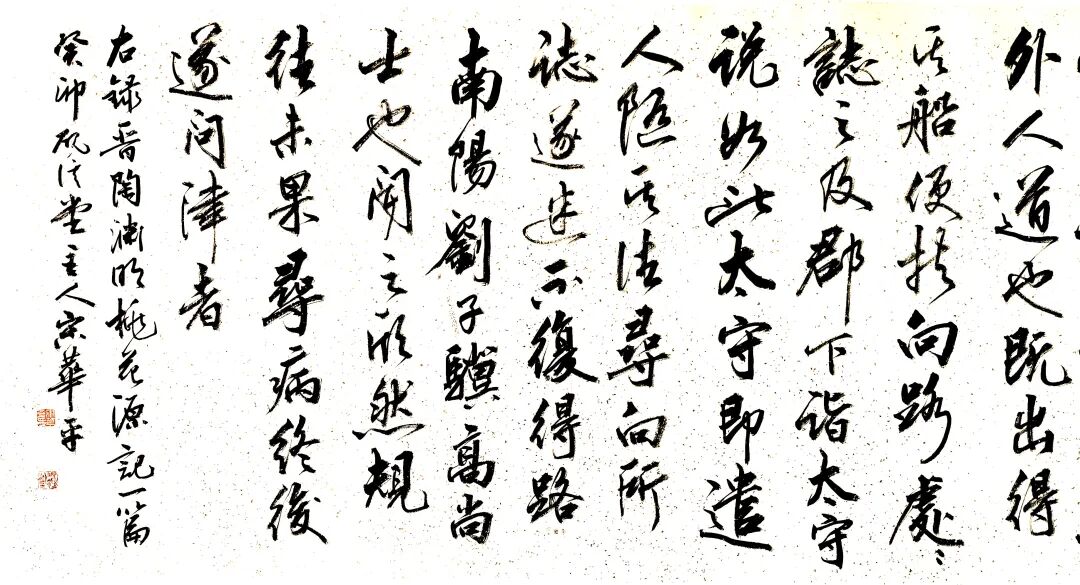 外人道也既出得
其船便扶向路處〻
誌之及郡下詣太守
説如此太守即遣
人隨其往尋向所
誌遂迷不復得路
南陽劉子驥高尚
士也聞之欣然規
往未果尋病終後
遂問津者
右録晉陶淵明桃花源記一篇
癸卯堂主人宋華平